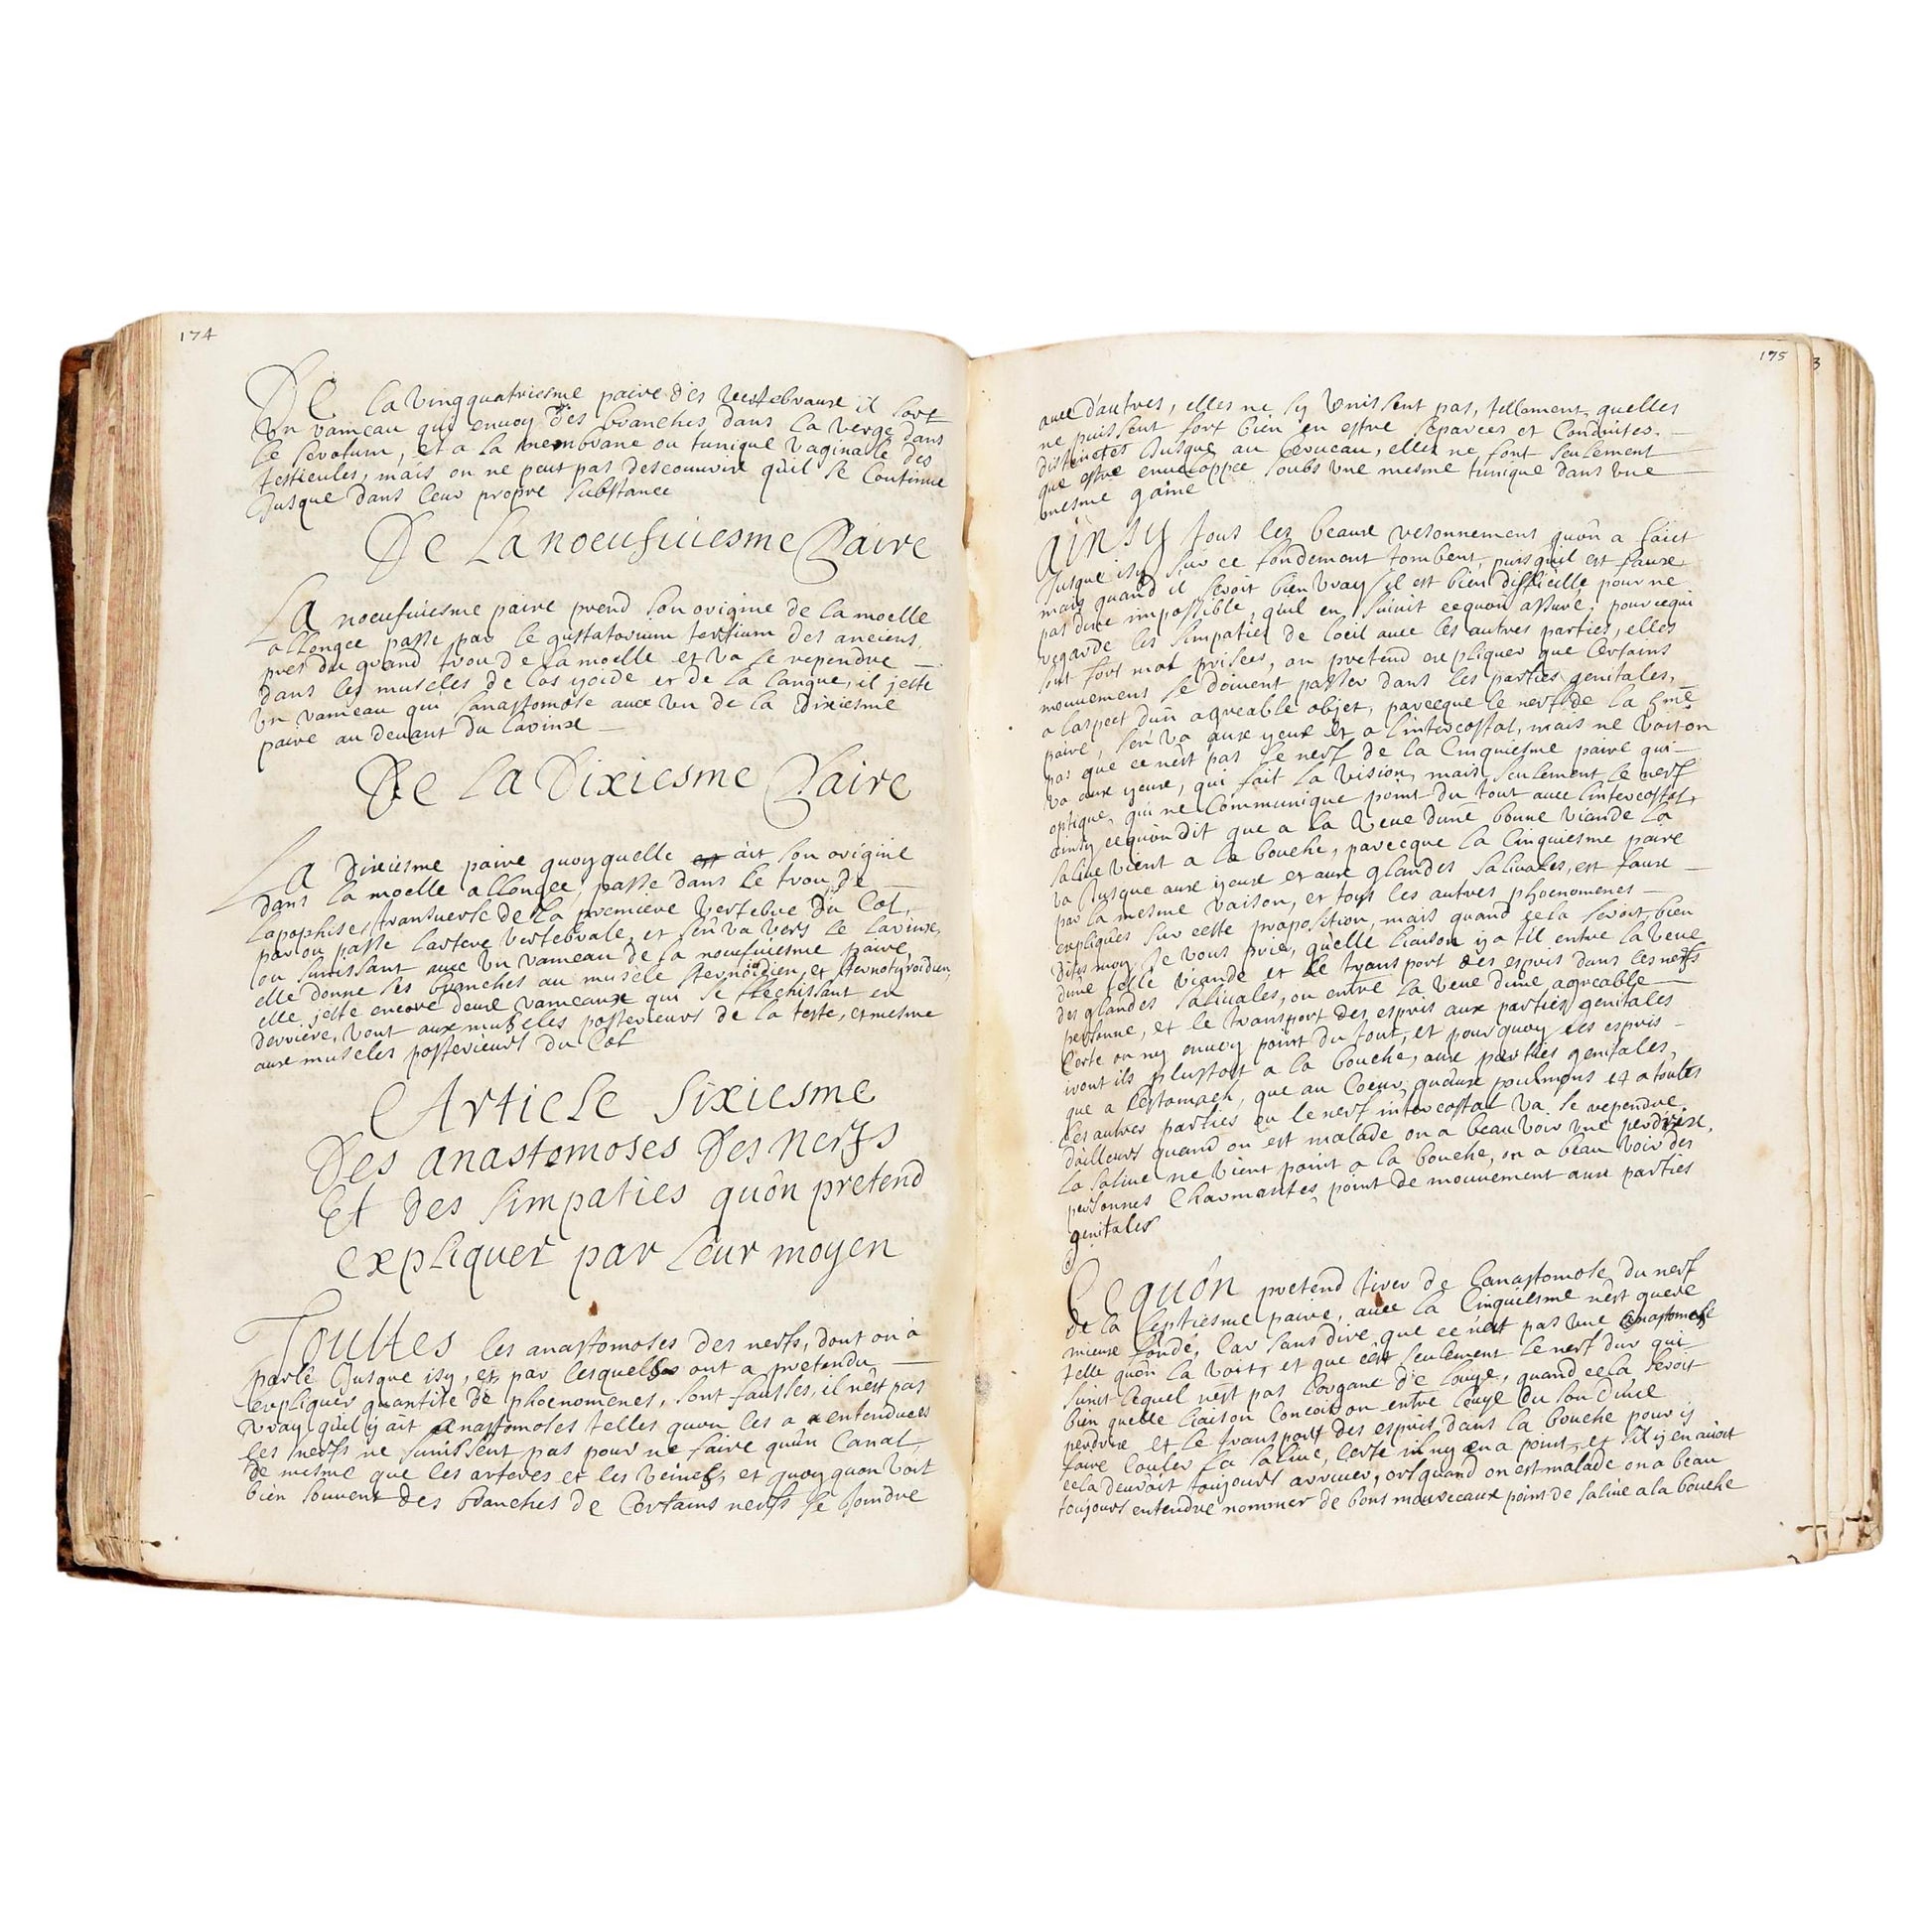 174
De la vingquatriesme paire des vertebraux il sort
un rameau qui envoy des branches dans la verge dans
le scrotum, et a la membrane ou tunique vaginalle des
testicules, mais on ne peut pas descouurir qu'il se continue
Jusque dans leur propre substance
De La noeufuiesme Paire
La noeufuiesme paire prend son origine de la moelle
allongee passe par le gustatorium tertium des anciens,
pres du grand trou de la moelle et va se rependre
dans les muscles de los yoide et de la langue, il jette
un rameau qui sanastomose auec un de la dixiesme
paire au deuant du larinx
De La Dixiesme Paire
La dixiesme paire quoy quelle est ait son origine
dans la moelle allongee, passe dans le trou de
lapophise transuerse de la premiere vertebre du Col,
par ou passe lartere vertebrale, et s'en va vers le larinx,
ou sunissant auec un rameau de la noeufuiesme paire,
elle donne ses branches au muscle sternoidien, et sternotyroidien,
elle jette encore deux rameaux qui se flechissant en
derriere, vont aux muscles posterieurs de la teste, et mesme
aux muscles posterieurs du Col
Article Sixiesme
Des anastomoses des nerfs
Et des simpaties qu'on pretend
expliquer par leur moyen
Touttes les anastomoses des nerfs, dont on a
parlé Jusque isy, et par lesquelles ont a pretendu
expliquer quantité de phoenomenes, sont fausses, il n'est pas
vray qu'il y ait anastomoses telles quon les a entendues
les nerfs ne sunissent pas pour ne faire qu'un Canal,
de mesme que les arteres et les veines, et quoy quon voit
bien souvent des branches de Certains nerfs se joindre
175
3
auec d'autres, elles ne sy unissent pas, tellement quelles
ne puissent fort bien en estre separées et Conduites
distinctes Jusque au Cerueau, elles ne font seulement
que estre enueloppée soubs une mesme tunique dans une
mesme gaine
Ainsy tous les beaux resonnement qu'on a faict
Jusque isy sur ce fondement tombent, puisqu'il est faux
mais quand il seroit bien vray, il est bien difficille pour ne
pas dire impossible, qu'il en suiuit ce quon assure, pour ce qui
regarde les simpaties de loeil auec les autres parties, elles
sont fort mal prisees, on pretend expliquer que Certains
mouuemens se doiuent passer dans les parties genitales,
a laspect d'un agreable objet, parceque le nerf de la 5me
paire, s'en va aux yeux et a l'intercostal, mais ne voit on
pas que ce n'est pas le nerf de la Cinquiesme paire qui
va aux yeux, qui fait la vision, mais seulement le nerf
optique, qui ne Communique point du tout auec lintercostal,
ainsy ce quon dit que a la veue dune bonne viande la
saliue vient a la bouche, parceque la Cinquiesme paire
va Jusque aux yeux et aux glandes saliuales, est faux
par la mesme raison, et tous les autres phoenomenes
expliqués sur cette proposition, mais quand cela seroit bien
dites moy Je vous prie, qu'elle liaison y a til entre la veue
dune telle viande et le transport des esprits dans les nerfs
des glandes saliuales, ou entre la veue dune agreable
personne, et le transport des esprits aux parties genitales
Certe on ny envoy point du tout, et pour quoy les esprits
iront ils plustost a la bouche, aux parties genitales,
que a lestomach, que au Coeur, quaux poulmons et a toutes
les autres parties ou le nerf intercostal va se rependre
dailleurs quand on est malade on a beau voir une perdrix,
la saliue ne vient point a la bouche, on a beau voir des
personnes Charmantes, point de mouuement aux parties
genitales
Ce qu'ôn pretend tirer de lanastomose du nerf
de la septiesme paire, auec la Cinquiesme n'est quere
mieux fondé, Car sans dire que ce n'est pas une anastomose
telle quon la voit, et que c'est seulement le nerf dur qui
sunit lequel n'est pas l'organe de louye, quand cela seroit
bien quelle liaison Concoit on entre louye du son dune
perdrix et le transport des esprits dans la bouche pour y
faire Couler la saliue, Certe il ny en a point, et sil y en auoit
cela deuroit toujours arriuer, or quand on est malade on a beau
toujours entendre nommer de bons mourceaux point de saliue a la bouche